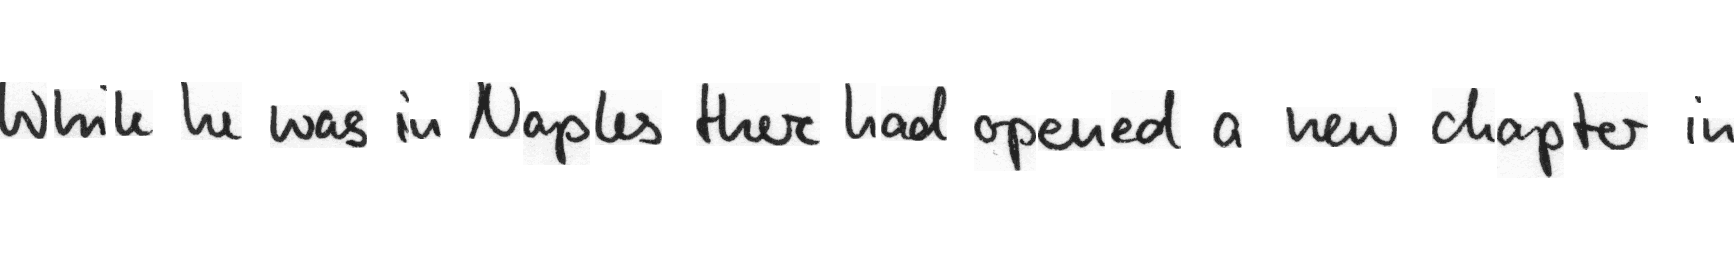 While he was in Naples there had opened a new chapter in